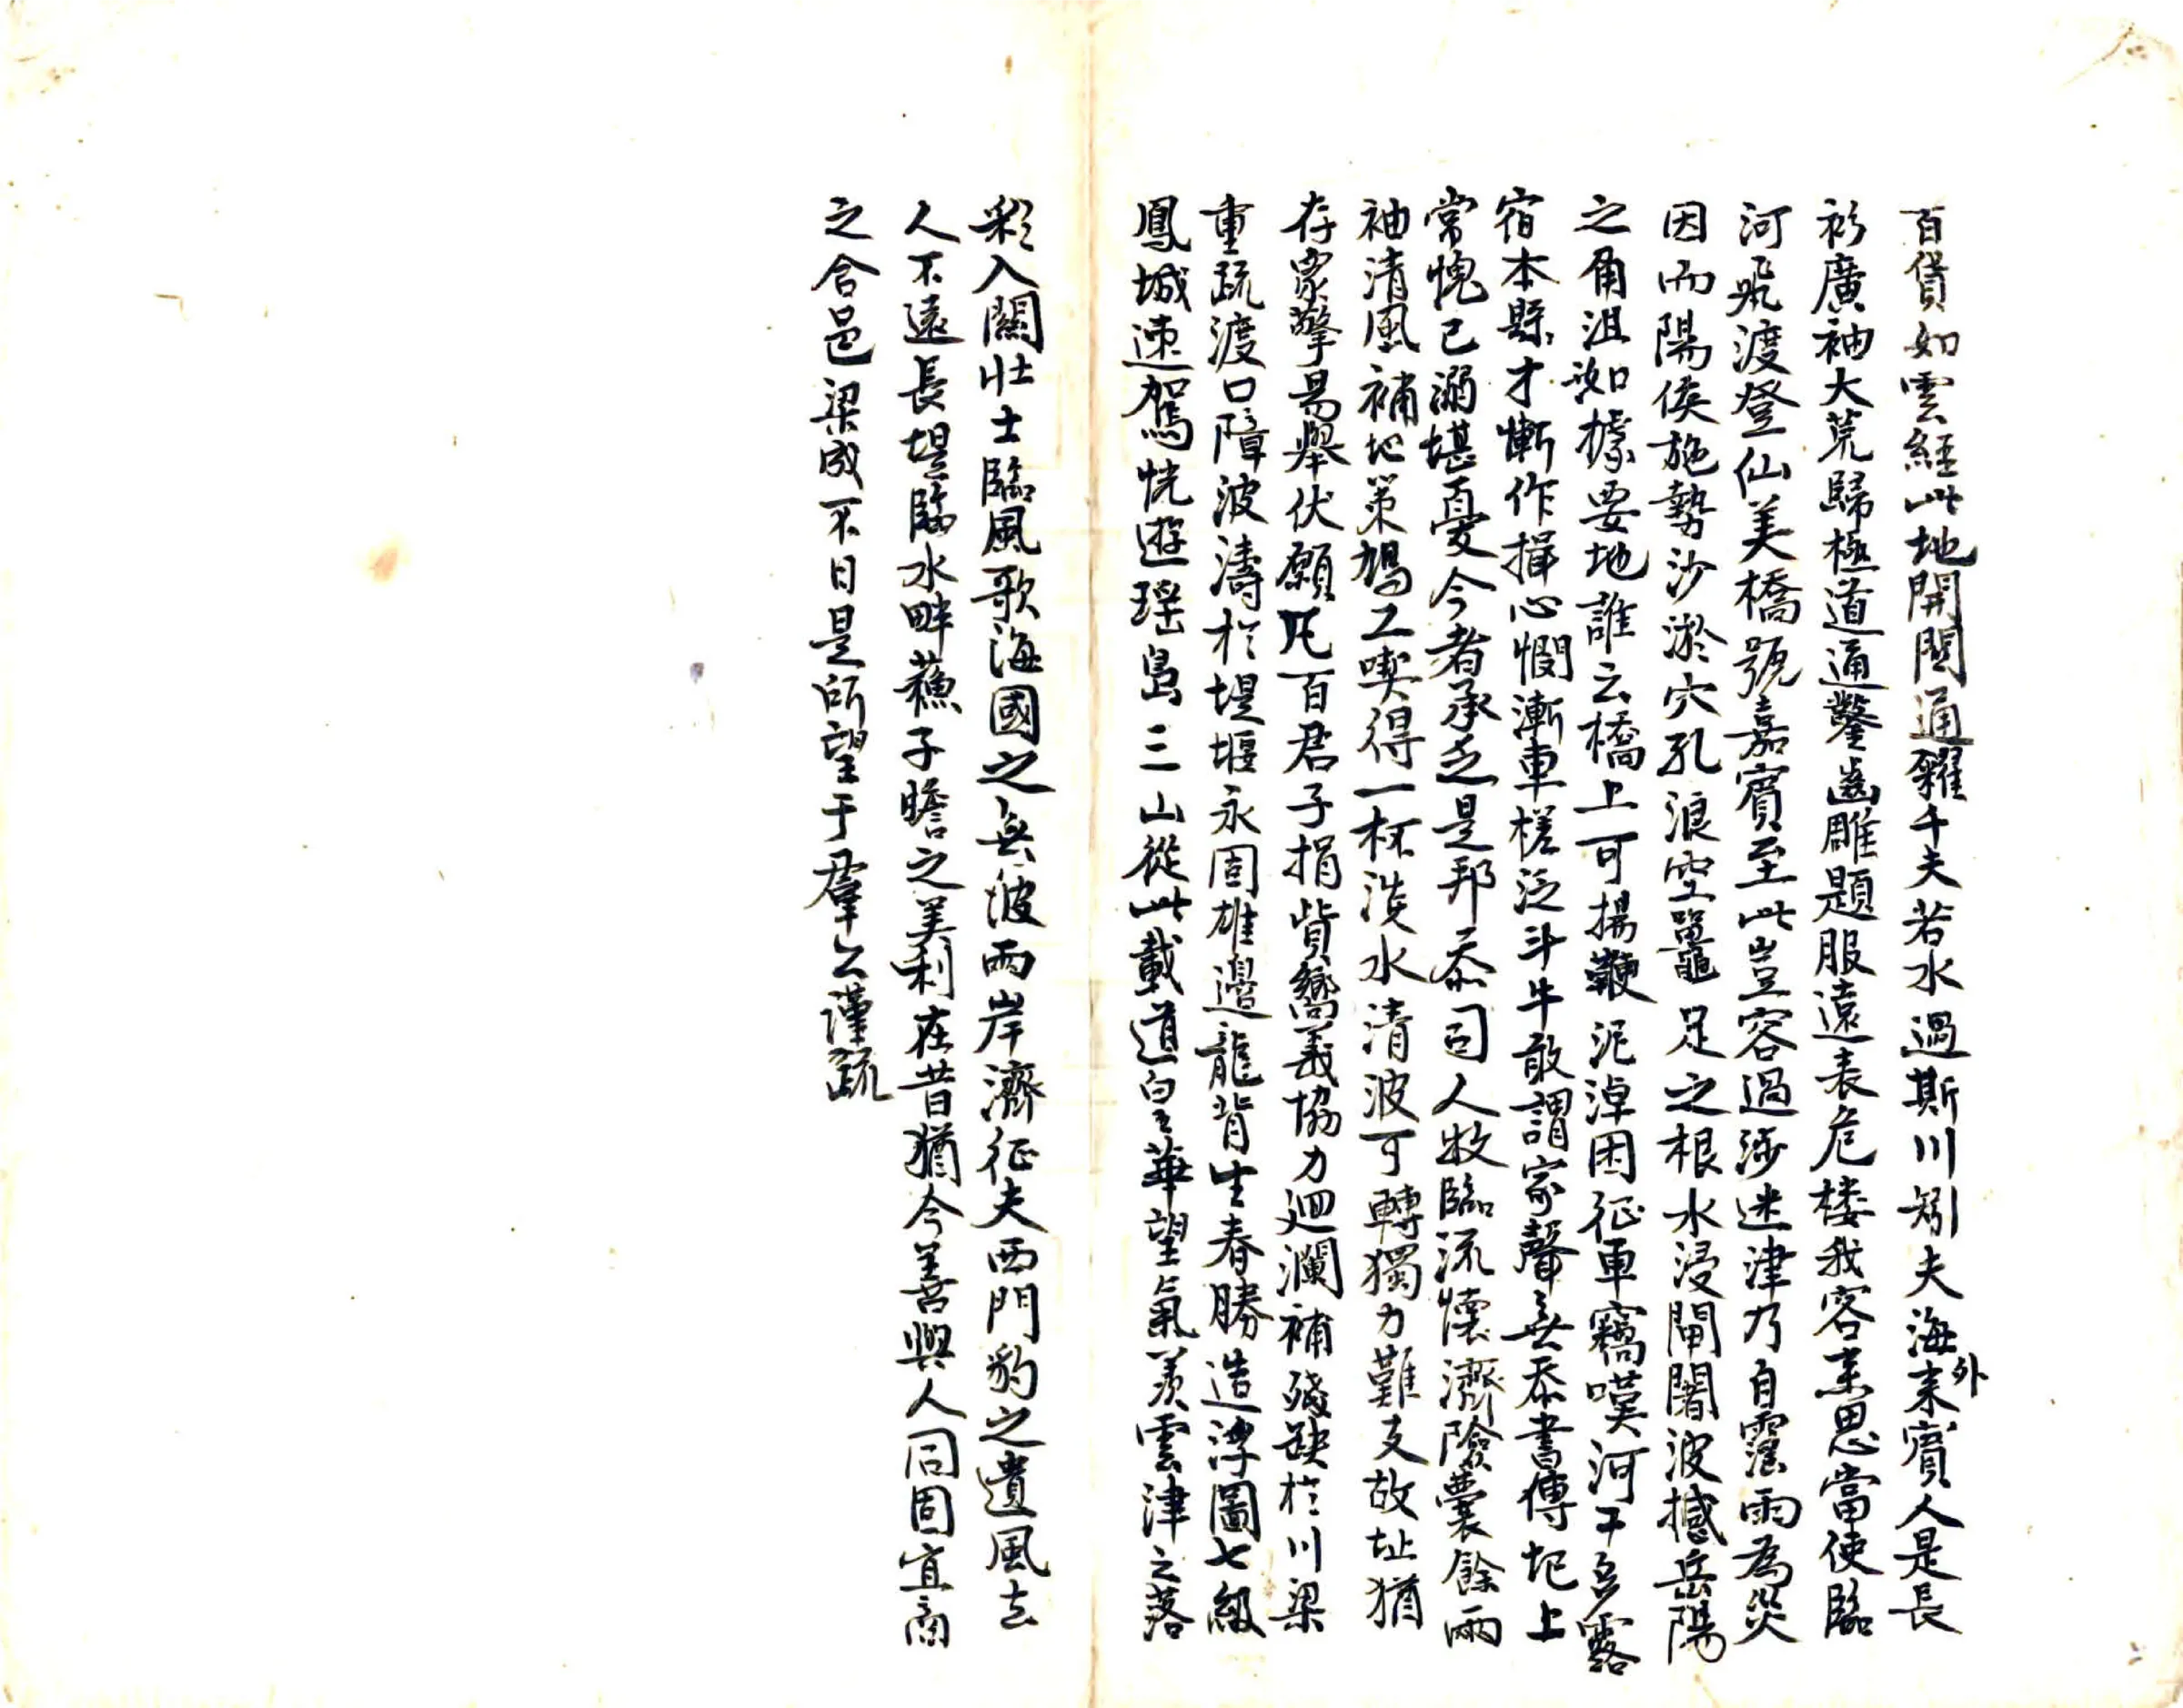 百貨如雲経此地開関通糴千夫若水過斯川矧夫海外来賓人是長
衫廣袖大荒歸極道通鑿齒雕題服遠表危楼我客来思當使臨
河飛渡登仙美橋號嘉賓至此豈容過涉迷津乃自霪雨為災
因而陽侯施勢沙淤穴孔浪空鼉足之根水浸閘闍波撼岳陽
之角沮洳據要地誰云橋上可揚鞭泥淖困征車竊嘆河干多露
宿本縣才慚作揖心憫漸車槎泛斗牛敢謂家聲無忝書傳圯上
常愧已溺堪憂今者承乏是邦忝司人牧臨流懐濟險囊餘兩
袖清風補地策鳩工喫得一杯淡水清波可轉獨力難支故址猶
存衆擎易舉伏願凡百君子捐貲嚮義協力迴瀾補殘缺於川梁
重疏渡口障波濤於堤堰永固雄邊龍背生春勝造浮圖七級
鳳城速駕恍遊瑤島三山從此載道皇華望氣羨雲津之落
彩入關壮士臨風歌海國之無波兩岸濟征夫西門豹之遺風去
人不遠長堤臨水畔蘓子瞻之美利在昔猶今善與人同固宜商
之合邑梁成不日是所望于羣公謹疏